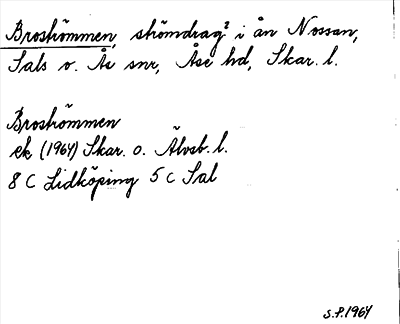 Broströmmen, strömdrag² i ån Nossan,
Sals o. Ås snr, Åse hd, Skar. l.
Broströmmen
ek (1964) Skar. o. Älvsb. l.
8 C Lidköping 5 c Sal
S.P.1964